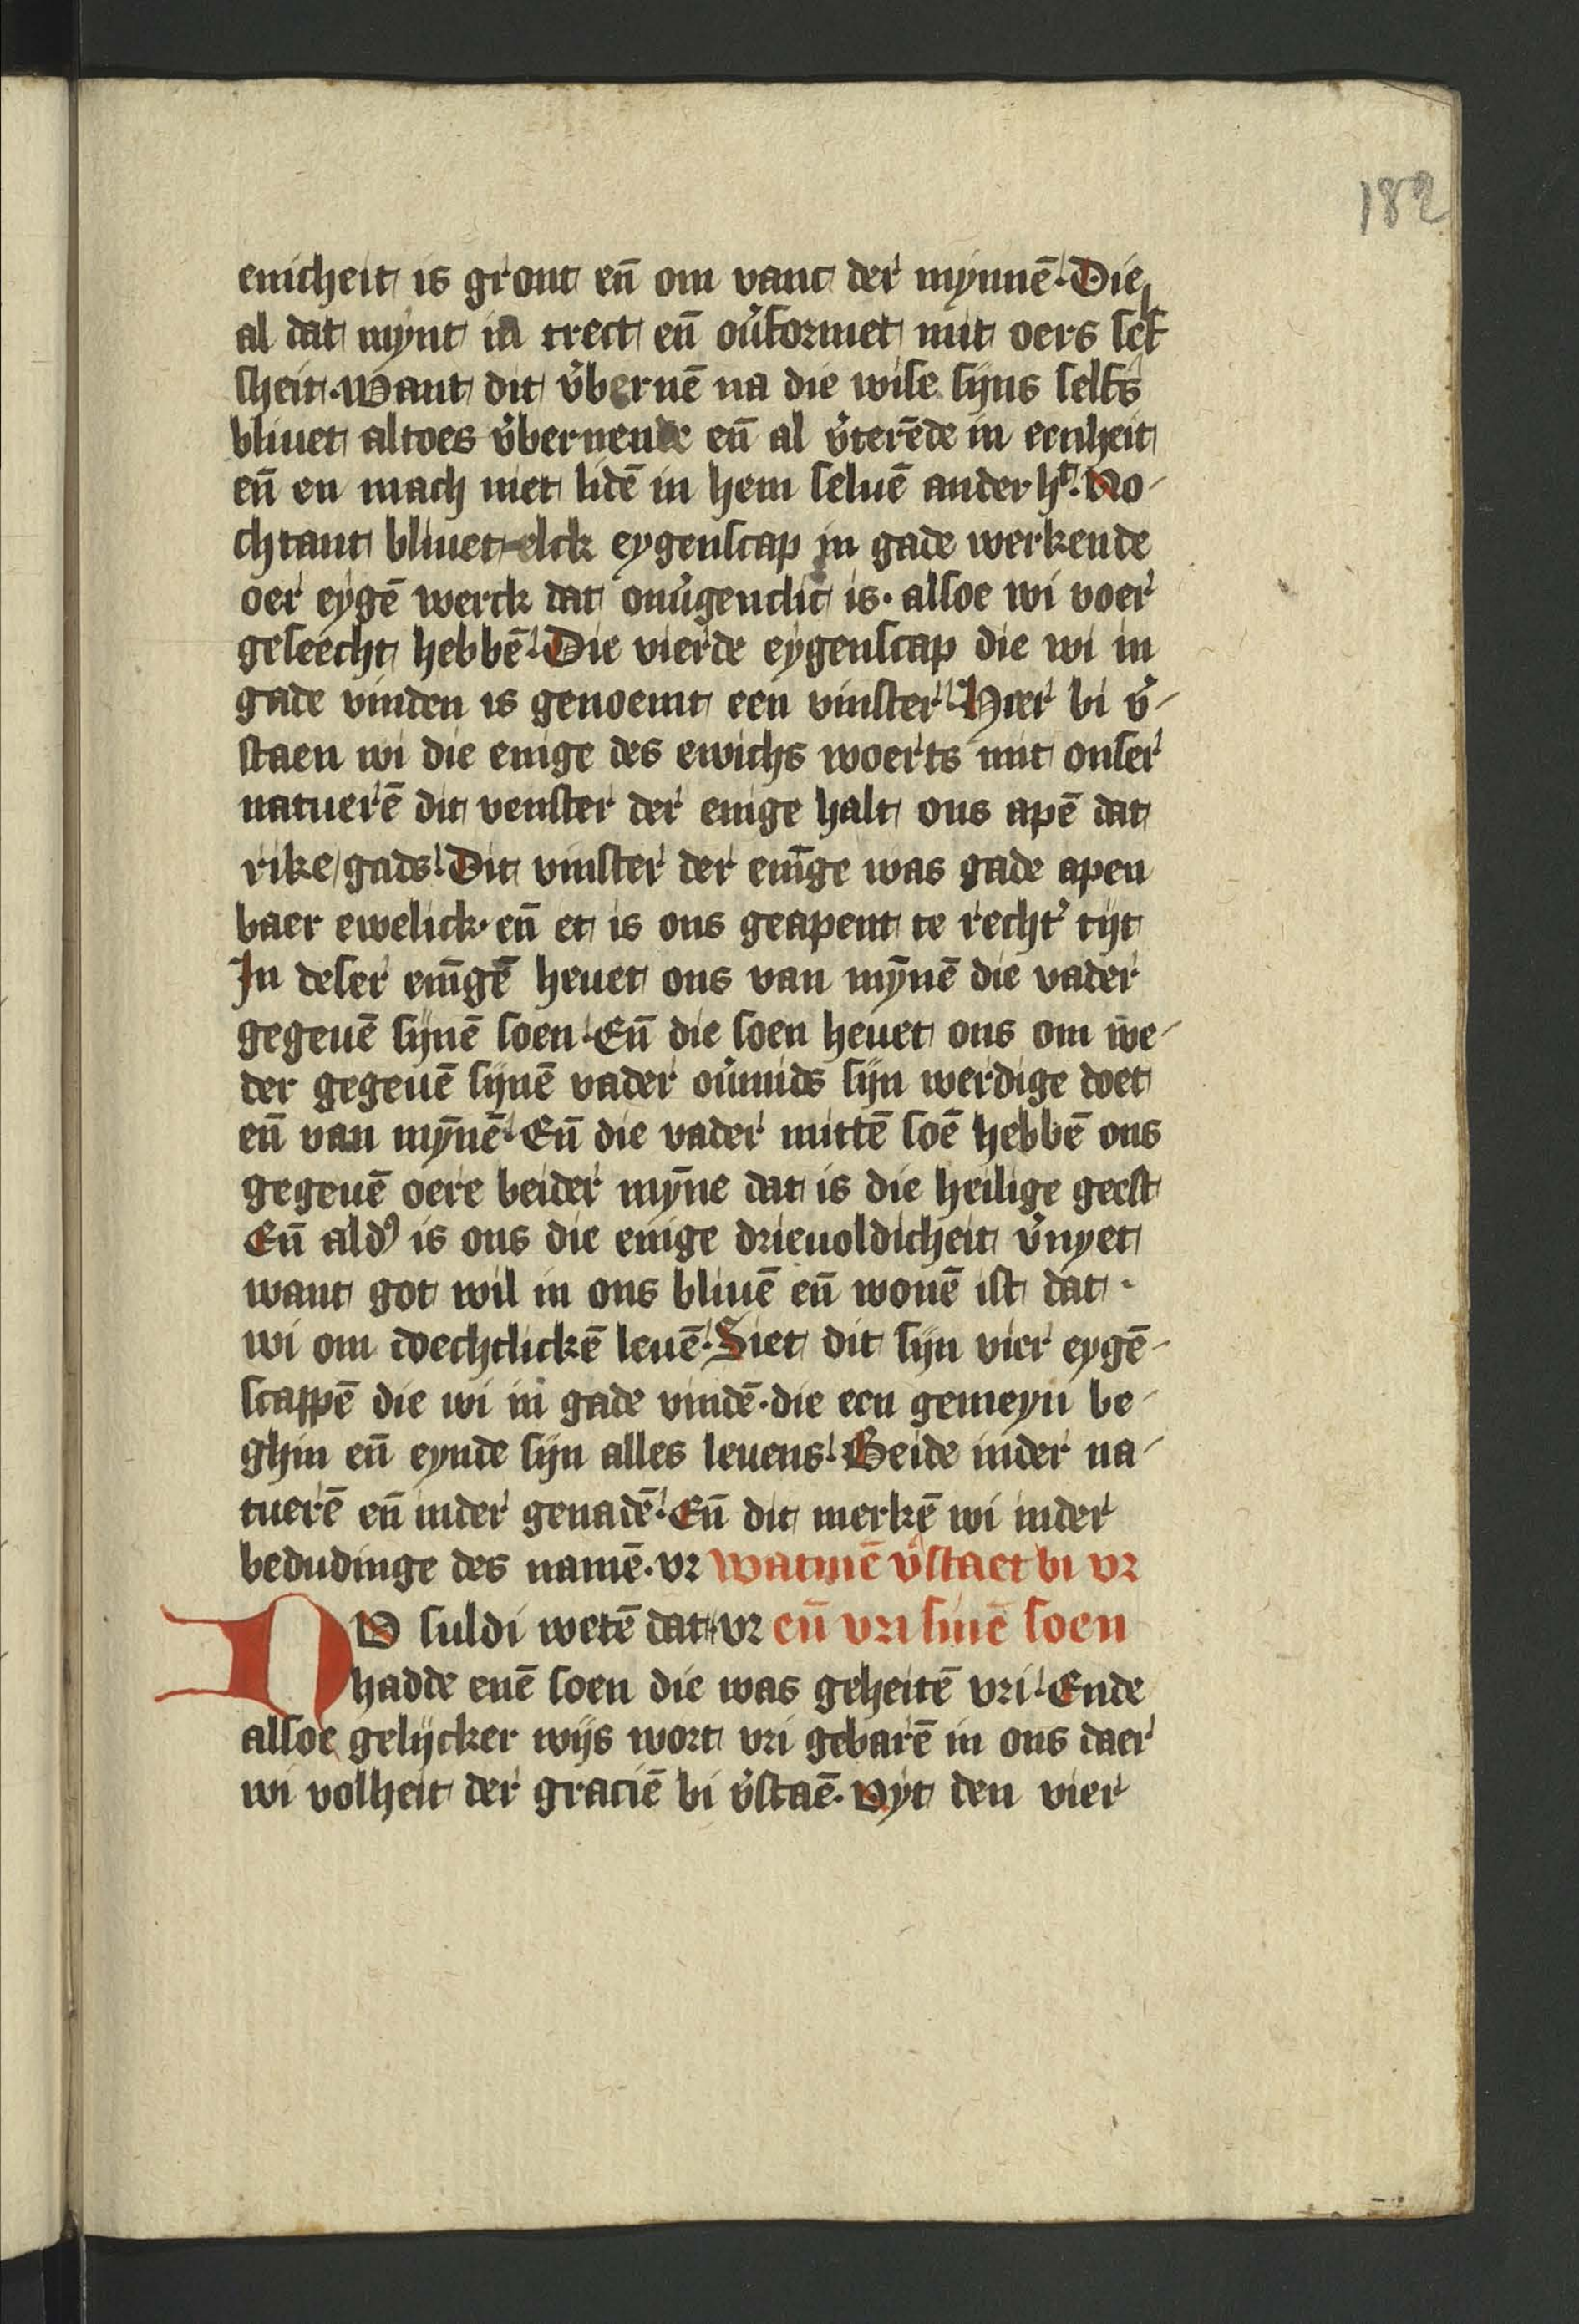 182
enicheit is gront en̄ om vanc der mynnē. Die
al dat mynt in trect en̄ ou̓formet mit oers self
sheit. Want dit v̓bernē na die wise sijns selfs
bliuet altoes v̓bernende en̄ al v̓terēde in eenheit
en̄ en mach niet lidē in hem seluē anderht. No-
chtant bliuet elck eygenscap in gade werkende
oer eygē werck dat onu̓genclic is. alsoe wi voer
geseecht hebbē. Die vierde eygenscap die wi in
gade vinden is genoemt een vinster. Hier bi v̓-
staen wi die enige des ewichs woerts mit onser
natuerē dit venster der enige halt ons apē dat
rike gads. Dit vinster der enīge was gade apen
baer ewelick. en̄ et is ons geapent te recht̓ tijt
In deser enīgē heuet ons van mȳnē die vader
gegeuē sijnē soen. En̄ die soen heuet ons om we-
der gegeuē sijnē vader ou̓mids sijn werdige doet
en̄ van mȳnē. En̄ die vader mittē soē hebbē ons
gegeuē oere beider mȳne dat is die heilige geest
En̄ ald̓ is ons die enige drieuoldicheit v̓nyet
want got wil in ons bliuē en̄ wonē ist dat
wi om doechtlickē leuē. Siet dit sijn vier eygē-
scappē die wi in gade vindē. die een gemeyn be-
ghin en̄ eynde sijn alles leuens. Beide inder na-
tuerē en̄ inder genadē. En̄ dit merkē wi inder
bedudinge des namē. vr watmē v̓staet bi vr
NV suldi wetē dat vr en̄ vri sinē soen
hadde enē soen die was geheitē vri. Ende
alsoe gelijcker wijs wort vri gebarē in ons daer
wi volheit der graciē bi v̓staē. Vyt den vier